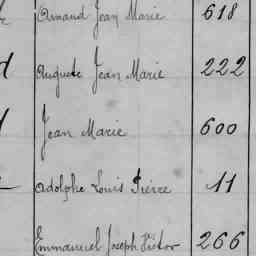 Armand Jean Marie 618
Auguste Jean Marie 222
Jean Marie 600
Adolphe Louis Pierre 11
Emmanuel Joseph Victor 266